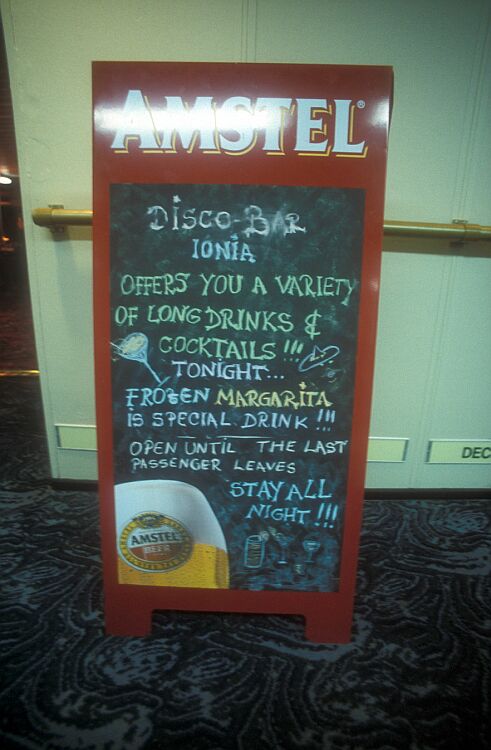 AMSTEL®
DISCO-BAR
IONIA
OFFERS YOU A VARIETY
OF LONG DRINKS &
COCKTAILS !!!
TONIGHT...
FROZEN MARGARITA
IS SPECIAL DRINK !!!
OPEN UNTIL THE LAST
PASSENGER LEAVES
STAY ALL
NIGHT !!!
AMSTEL
BEER
DEC